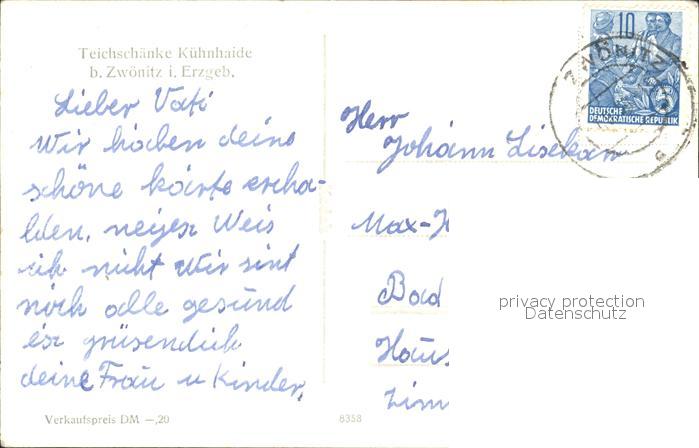 Teichschänke Kühnhaide
b. Zwönitz i. Erzgeb.
Lieber Vati
Wir haben deine
schöne kárte ercha-
lden, neijes Weis
ich nicht Wir sint
noch alle gesund
es grüsendich
deine Frau u Kinder,
Verkaufspreis DM —,20
8358
10
DEUTSCHE
DEMOKRATISCHE REPUBLIK
ZWÖNITZ
Herr
Johann
Max-H
Bad
Haus
Zim
privacy protection
Datenschutz